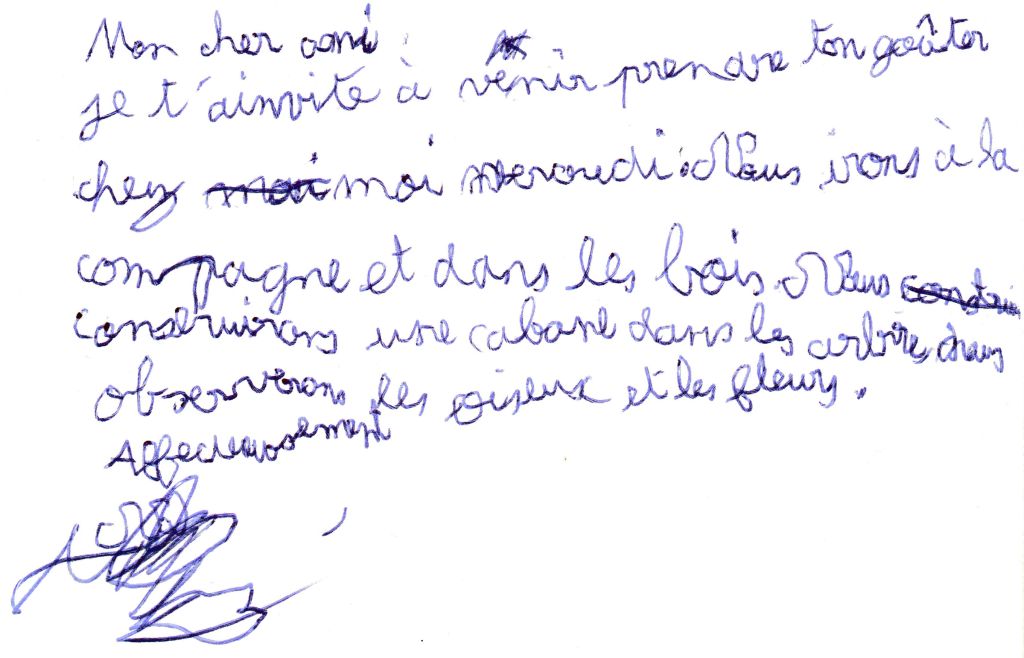 Mon cher ami :
je t'ainvite à vênir prendre ton goâûter
chez moi mercredi. Nous irons à la
compagne et dans les bois. Nous
construirons une cabane dans les arbre nous
observerons les oiseux et les fleurs.
Affectueusement